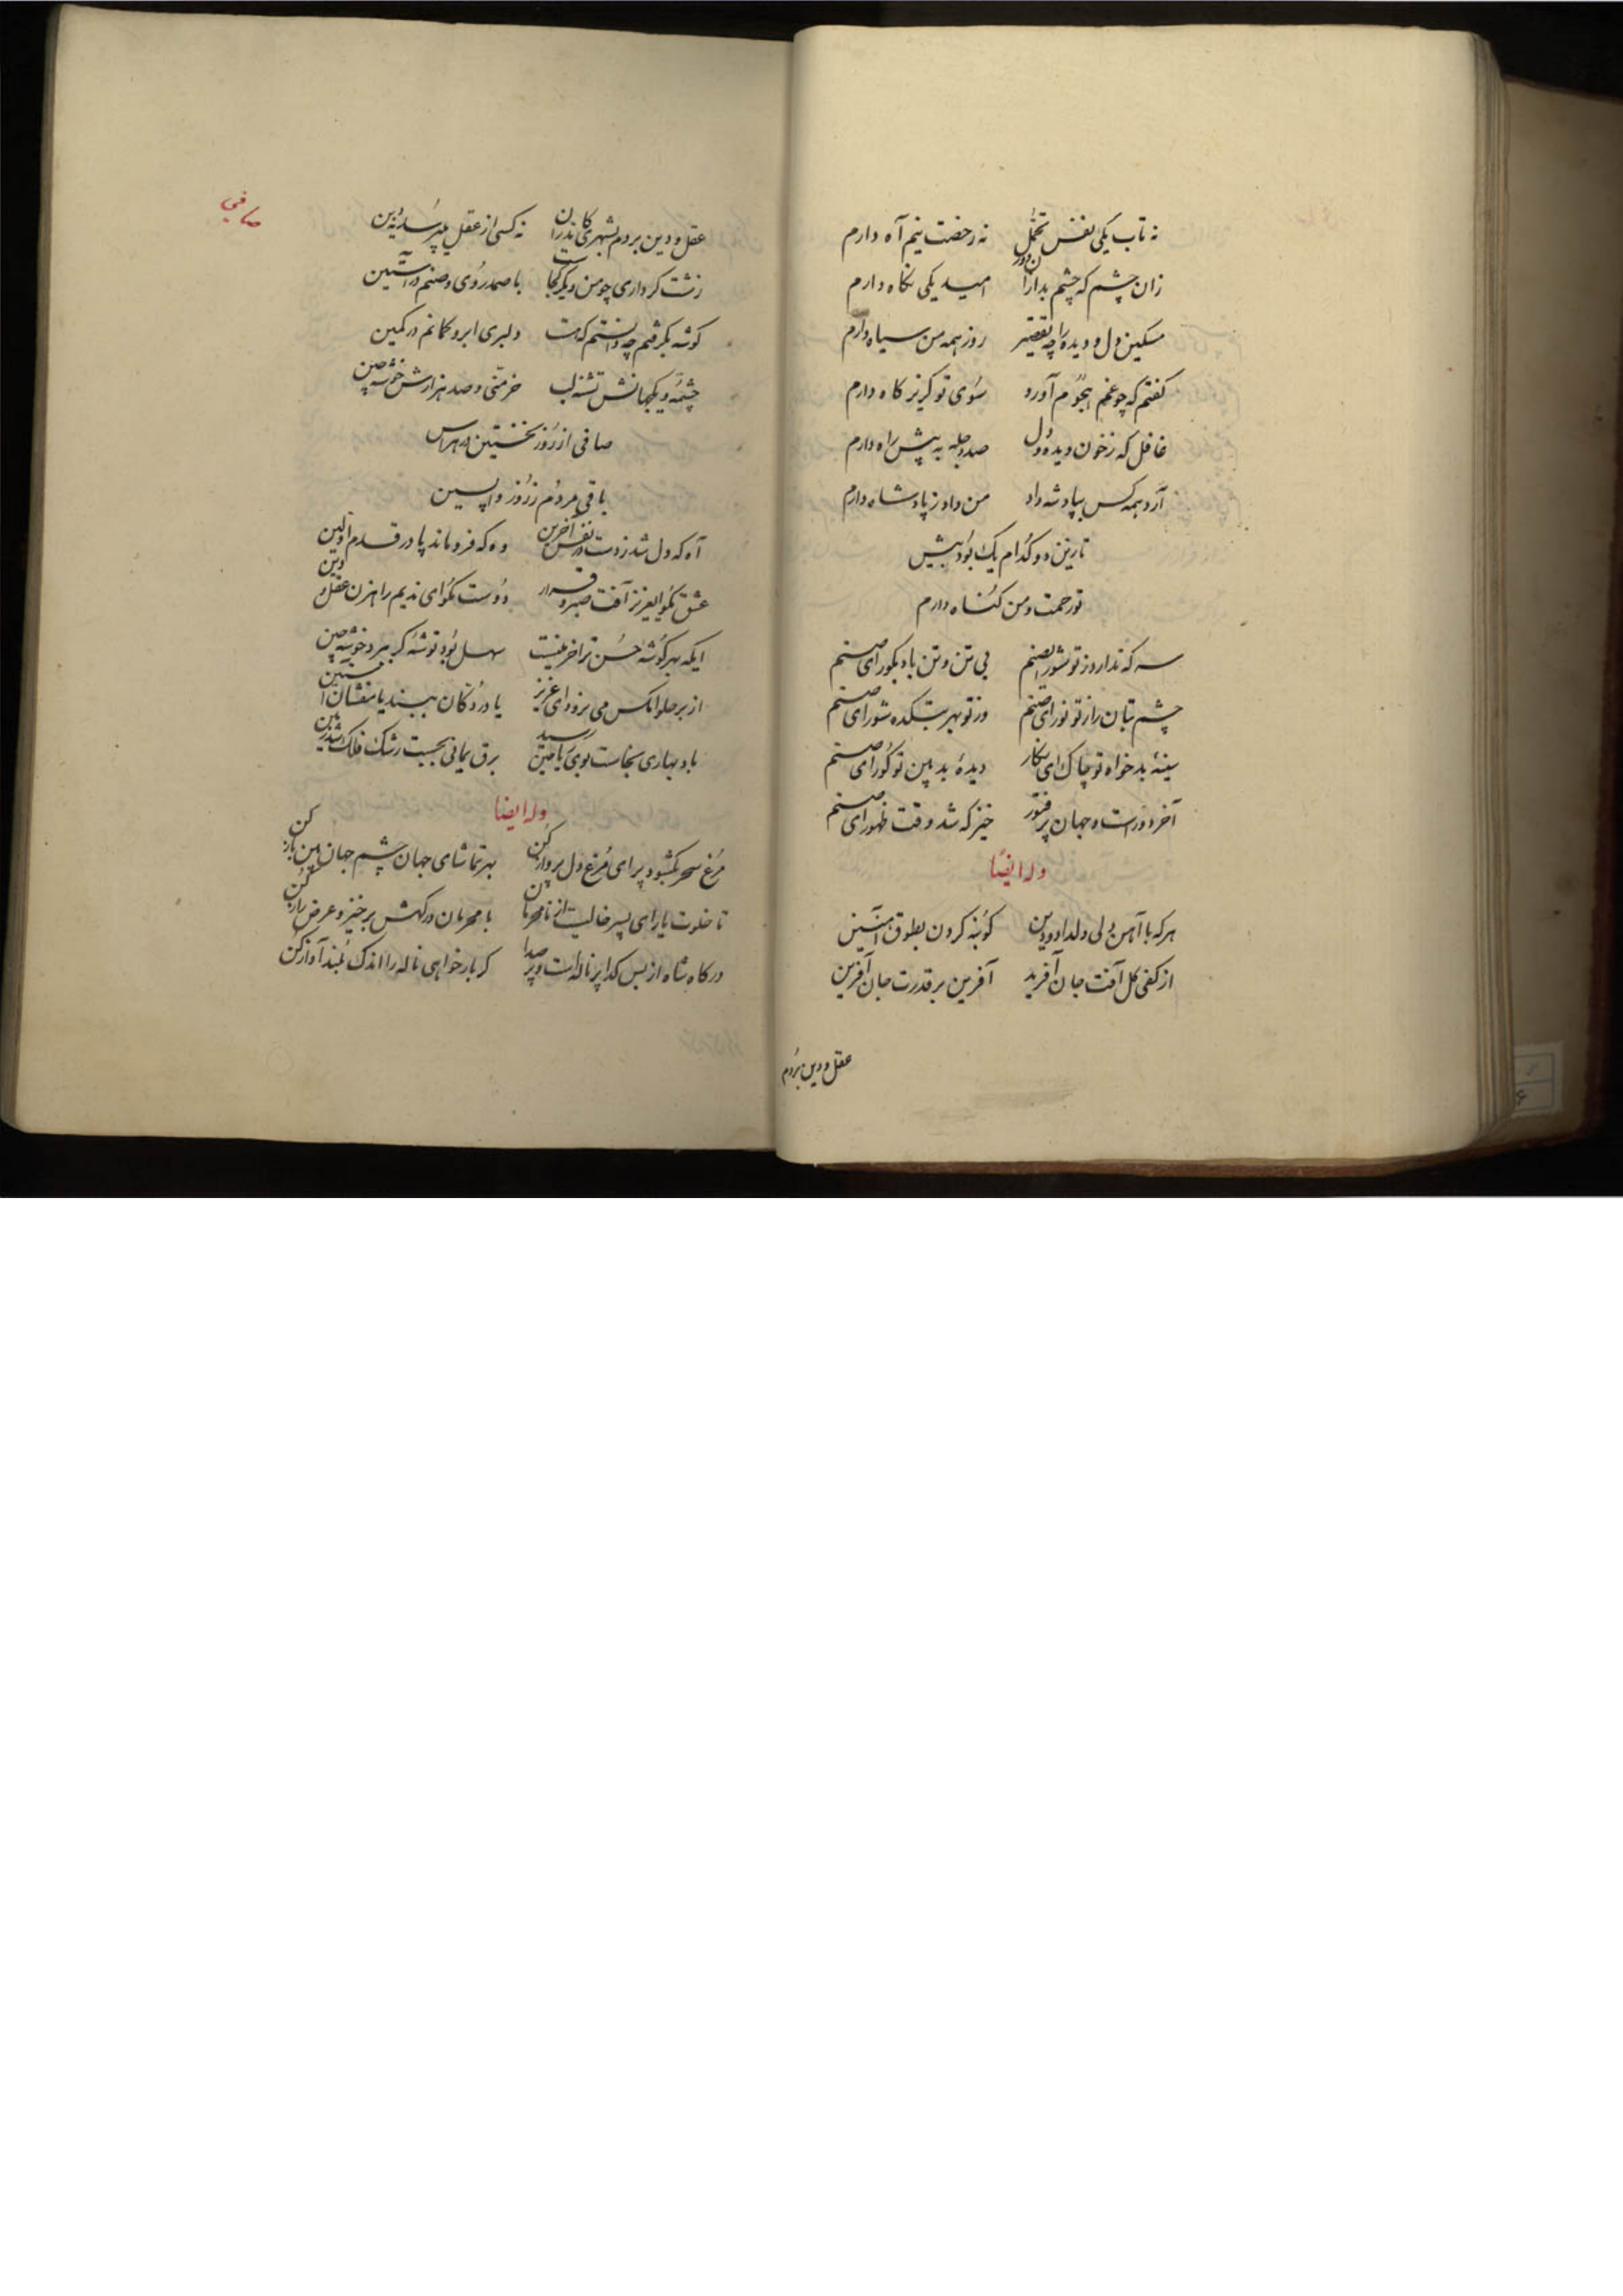 نه تاب یکی نفس تحمل نه رخصت نیم آه دارم
زان چشم که چشم بد ازان دور امید یکی نکاه دارم
مسکین دل و دیده را چه تقصیر روز همه من سیاه دارم
کفتم که چو غم هجوم آورد سوی تو کریز کاه دارم
غافل که زخون دیده و دل صد دجله به پیش راه دارم
آرد همه کس بپادشه داد من داد ز پادشاه دارم
تا زین دو کدام یک بود بیش
تو رحمت و من کناه دارم
سر که ندارد ز تو شور ایصنم بی تن و تن باد بکور ای صنم
چشم بتان راز تو نور ای صنم وز تو بهر بتکده شور ای صنم
سینهٔ بدخواه تو چاک ای نکار دیدهٔ بد بین تو کور ای صنم
آخر دورست و جهان پر فتور خیز که شد وقت ظهور ای صنم
وله ایضا
هر که با آهن دلی دلداد و دین کو بنه کردن بطوق آهنین
از کفی کل آفت جان آفرید آفرین بر قدرت جان آفرین
عقل و دین بردم
صافی
عقل و دین بردم بشهری کاندران نه کسی از عقل پرسد نه ز دین
زشت کرداری چو من دیکر کجاست با صمد روی و صنم در آستین
کوشه بکرفتم چه دانستم که هست دلبری ابرو کمانم در کمین
چشمهٔ و یکجهانش تشنه لب خرمنی و صد هزارش خوشه چین
صافی از روز نخستین در هراس
باقی مردم ز روز واپسین
آه که دل شد ز دست در نفس آخرین وه که فرو ماند پا در قدم اولین
عشق مکو ایعزیز آفت صبر و قرار دوست مکو ای ندیم راهزن عقل و دین
ایکه بهر کوشه حسن ترا خرمنیست سهل بود توشهٔ کر ببرد خوشه چین
از بر حلوا مکس می نرود ای عزیز یا در دکان ببند یا منشان آستین
باد بهاری بخاست بوی ریاحین رسید برق یمانی بجست رشک فلک شد زمین
وله ایضا
مرغ سحر بکشود پر ای مرغ دل پرواز کن بهر تماشای جهان چشم جهان بین باز کن
تا خلوت یار ای پسر خالیست از نامحرمان با محرمان درکهش برخیز و عرض راز کن
درکاه شاه از بس کدا پر ناله است و پر صدا کر بار خواهی ناله را اندک بلند آواز کن